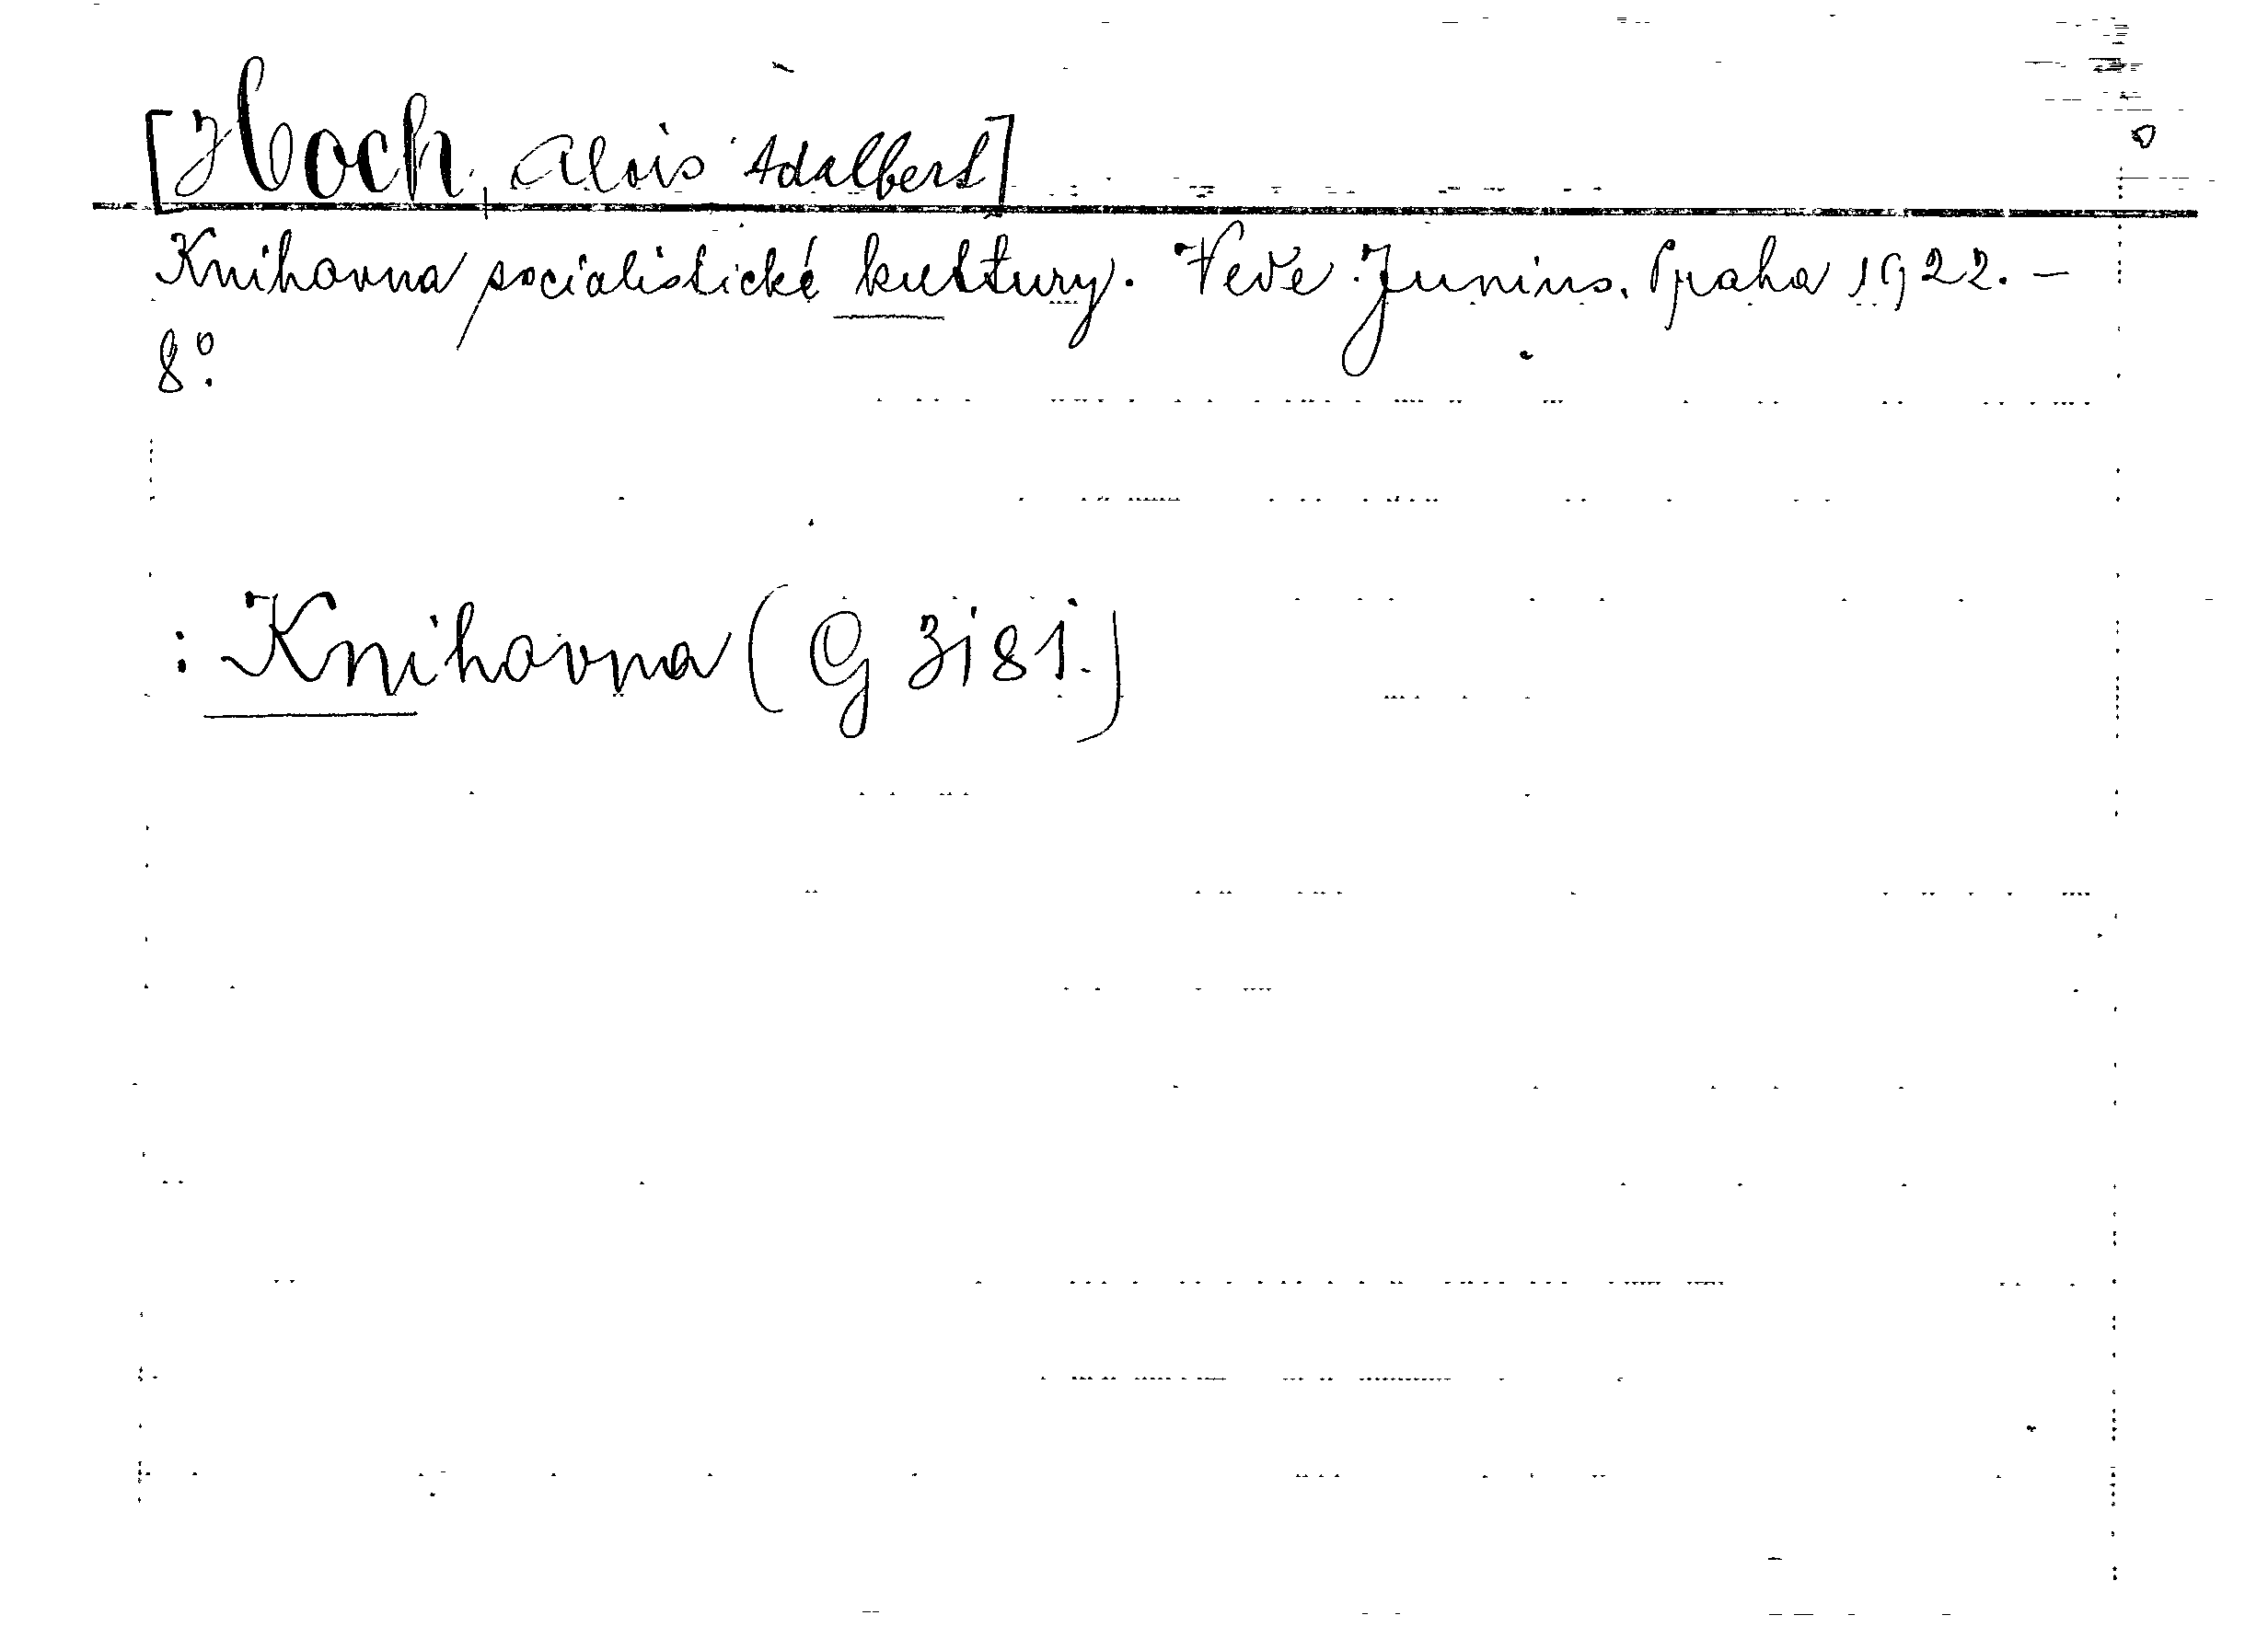 [Hoch, Alois Adalbert]
Knihovna socialistické kultury. Vede Junius. Praha 1922. –
8°.
: Knihovna (G 3181.)